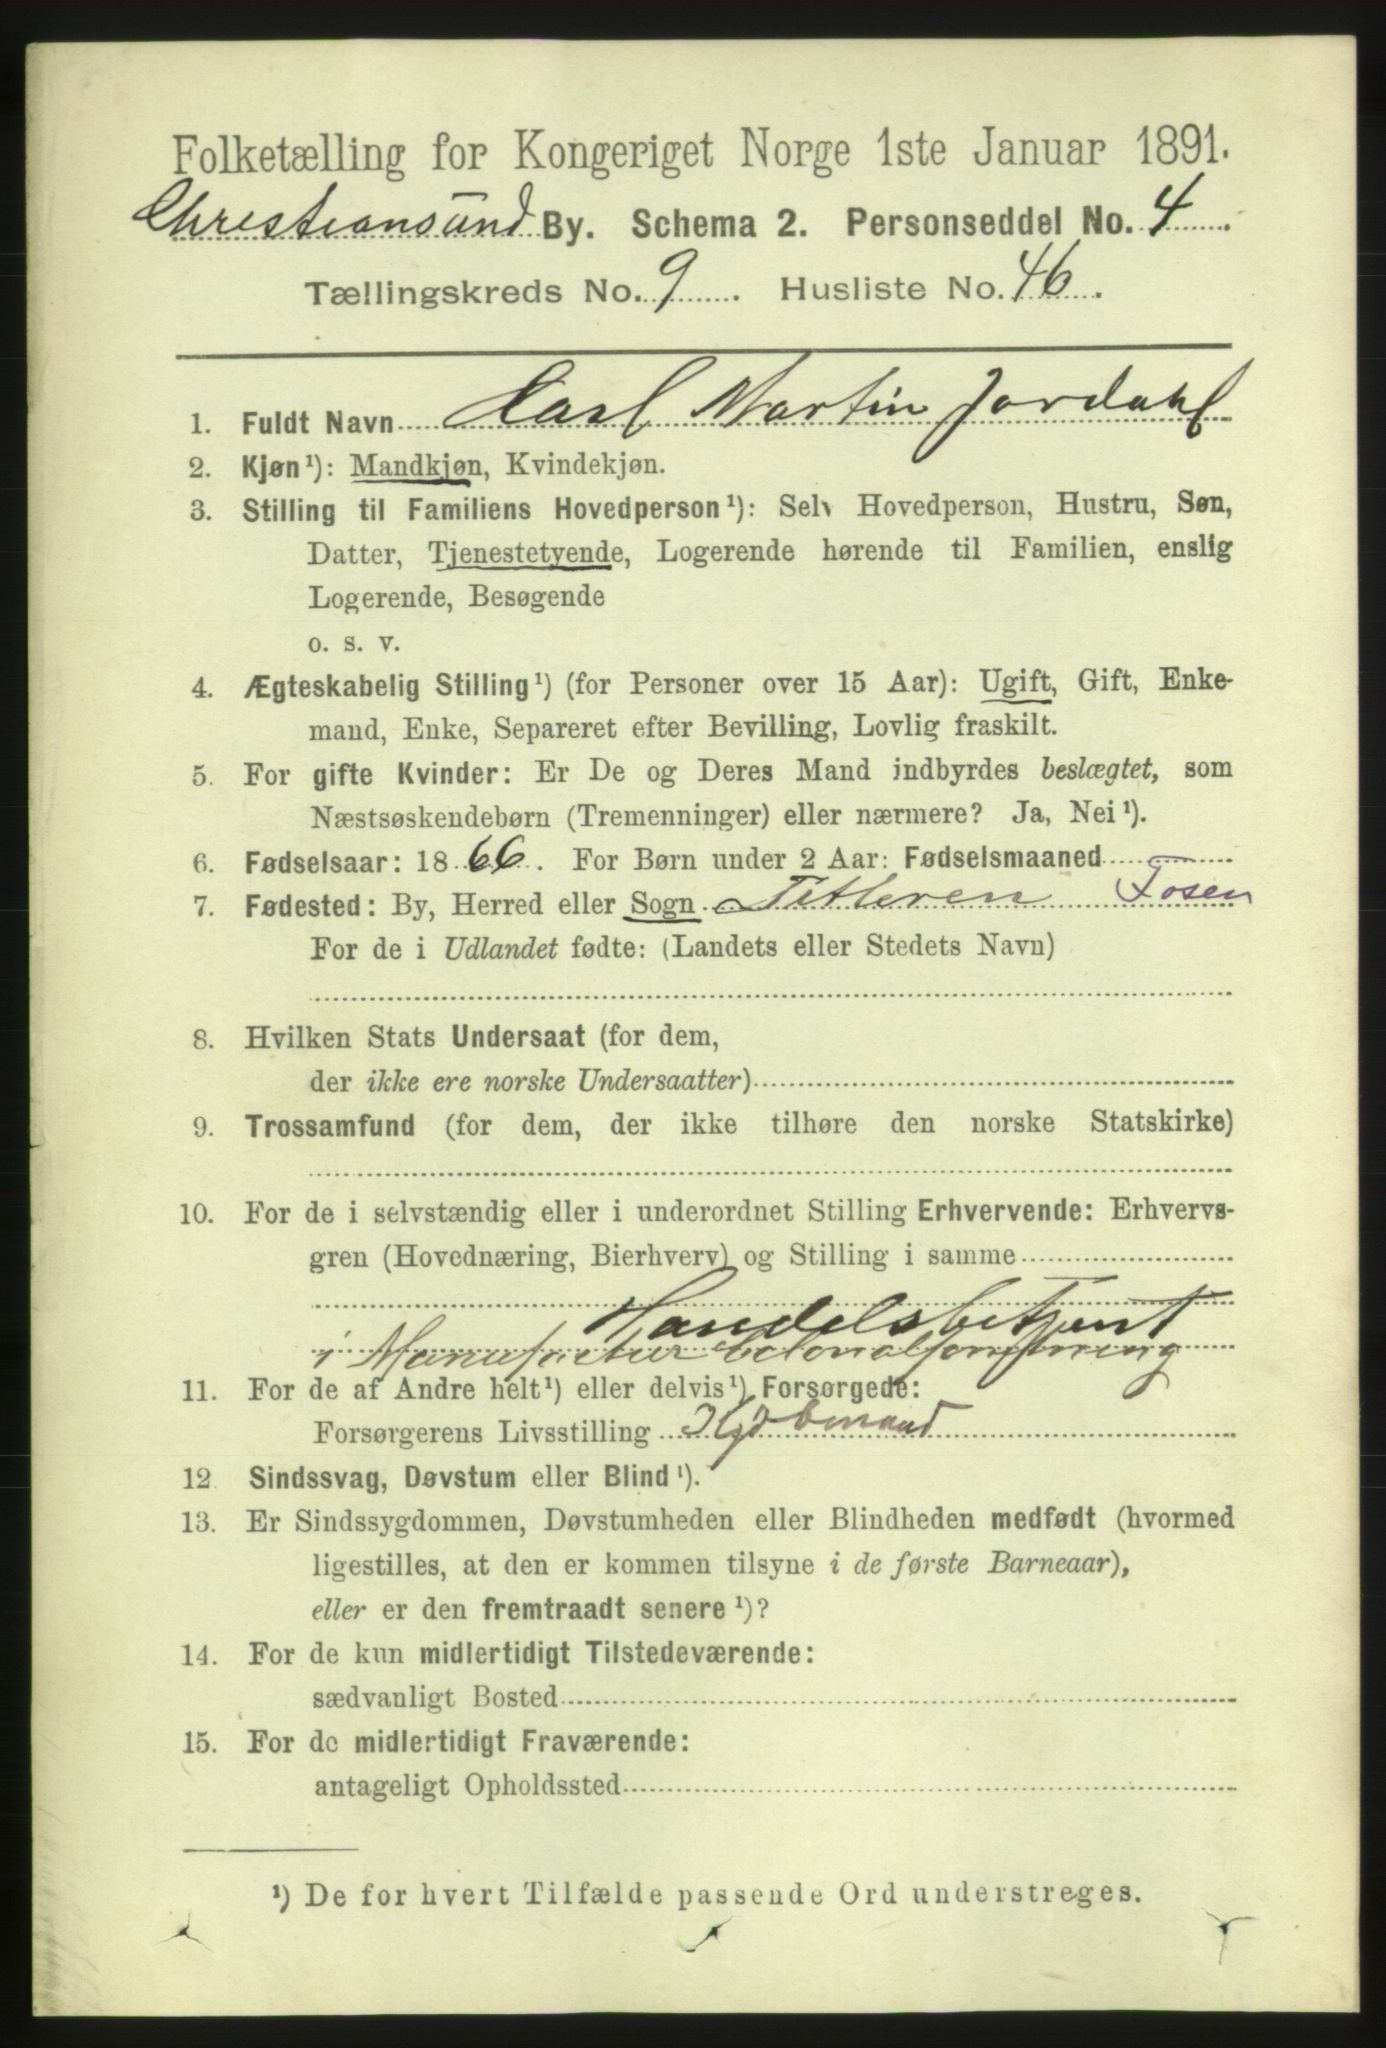 Folketælling for Kongeriget Norge 1ste Januar 1891.
Christiansund By. Schema 2. Personseddel No. 4.
Tællingskreds No. 9. Husliste No. 46.
1. Fuldt Navn Carl Martin Jordahl
2. Kjøn¹): Mandkjøn, Kvindekjøn.
3. Stilling til Familiens Hovedperson¹): Selv Hovedperson, Hustru, Søn,
Datter, Tjenestetyende, Logerende hørende til Familien, enslig
Logerende, Besøgende
o. s. v.
4. Ægteskabelig Stilling¹) (for Personer over 15 Aar): Ugift, Gift, Enke-
mand, Enke, Separeret efter Bevilling, Lovlig fraskilt.
5. For gifte Kvinder: Er De og Deres Mand indbyrdes beslægtet, som
Næstsøskendebørn (Tremenninger) eller nærmere? Ja, Nei¹).
6. Fødselsaar: 1866. For Børn under 2 Aar: Fødselsmaaned
7. Fødested: By, Herred eller Sogn Titteren Fosen
For de i Udlandet fødte: (Landets eller Stedets Navn)
8. Hvilken Stats Undersaat (for dem,
der ikke ere norske Undersaatter)
9. Trossamfund (for dem, der ikke tilhøre den norske Statskirke)
10. For de i selvstændig eller i underordnet Stilling Erhvervende: Erhvervs-
gren (Hovednæring, Bierhverv) og Stilling i samme
Handelsbetjent
i Manufactur
11. For de af Andre helt¹) eller delvis¹) Forsørgede:
Forsørgerens Livsstilling Kjøbmand
12 Sindssvag, Døvstum eller Blind¹).
13. Er Sindssygdommen, Døvstumheden eller Blindheden medfødt (hvormed
ligestilles, at den er kommen tilsyne i de første Barneaar),
eller er den fremtraadt senere¹)?
14. For de kun midlertidigt Tilstedeværende:
sædvanligt Bosted
15. For de midlertidigt Fraværende:
antageligt Opholdssted
¹) De for hvert Tilfælde passende Ord understreges.